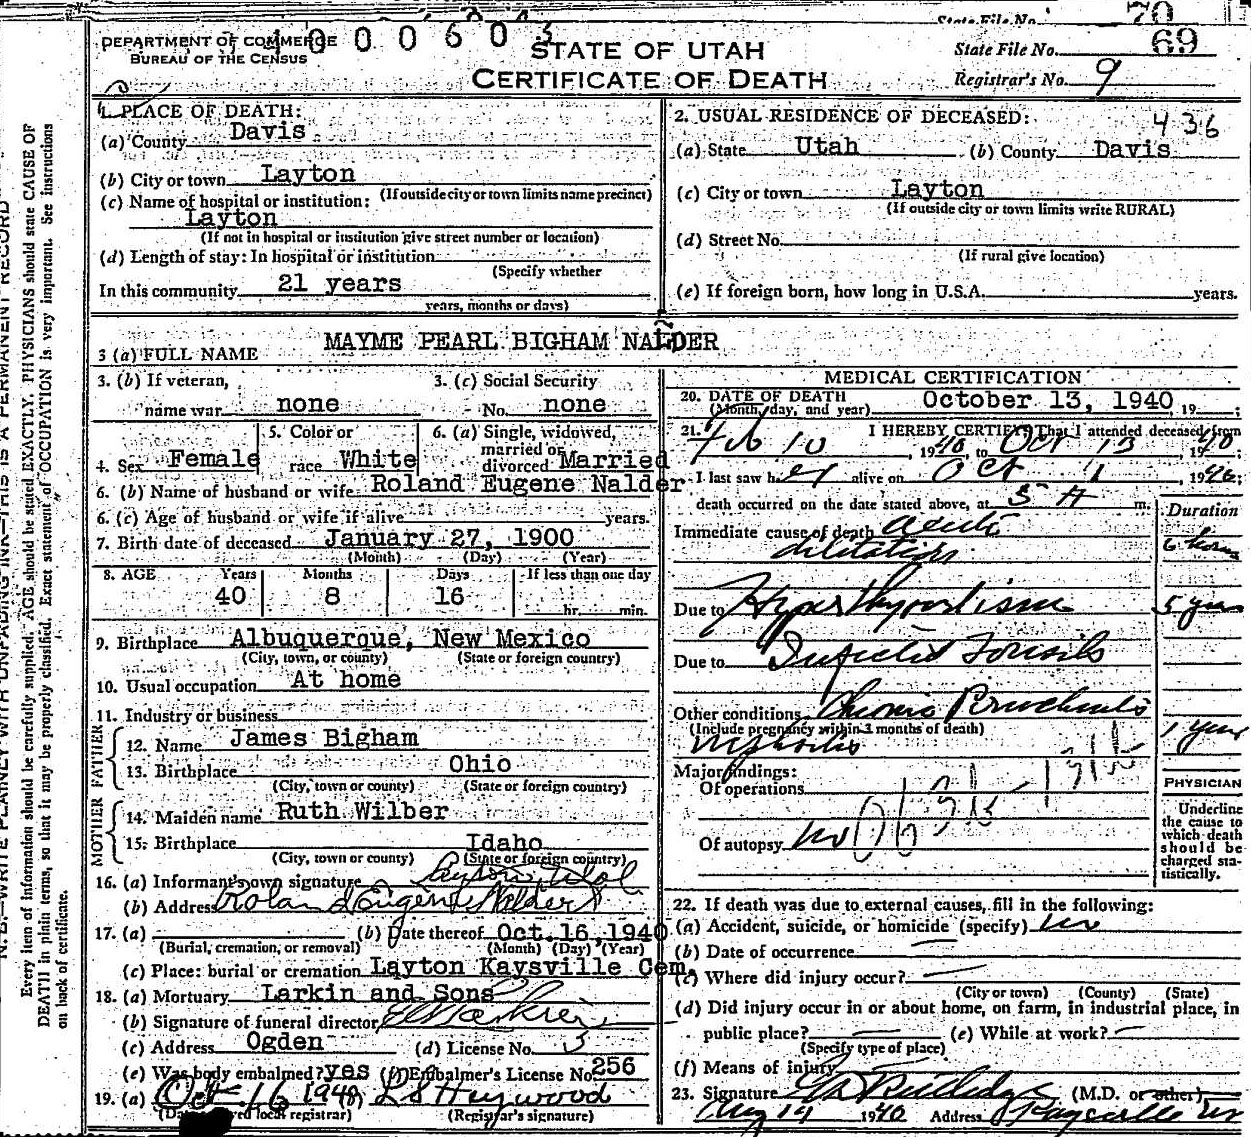 State File No. 70
DEPARTMENT OF COMMERCE
BUREAU OF THE CENSUS
4000603
STATE OF UTAH
CERTIFICATE OF DEATH
State File No. 69
Registrar's No. 9
1. PLACE OF DEATH:
(a) County Davis
(b) City or town Layton
(If outside city or town limits name precinct)
(c) Name of hospital or institution:
Layton
(If not in hospital or institution give street number or location)
(d) Length of stay: In hospital or institution
(Specify whether
In this community 21 years
years, months or days)
2. USUAL RESIDENCE OF DECEASED: 436
(a) State Utah (b) County Davis
(c) City or town Layton
(If outside city or town limits write RURAL)
(d) Street No.
(If rural give location)
(e) If foreign born, how long in U.S.A. years.
3 (a) FULL NAME MAYME PEARL BIGHAM NALDER
3. (b) If veteran, name war none
3. (c) Social Security No. none
4. Sex Female
5. Color or race White
6. (a) Single, widowed, married or divorced Married
6. (b) Name of husband or wife Roland Eugene Nalder
6. (c) Age of husband or wife if alive years.
7. Birth date of deceased January 27, 1900
(Month) (Day) (Year)
8. AGE Years Months Days If less than one day
40 8 16 hr. min.
9. Birthplace Albuquerque, New Mexico
(City, town, or county) (State or foreign country)
10. Usual occupation At home
11. Industry or business
FATHER
12. Name James Bigham
13. Birthplace Ohio
(City, town or county) (State or foreign country)
MOTHER
14. Maiden name Ruth Wilber
15. Birthplace Idaho
(City, town or county) (State or foreign country)
16. (a) Informant's own signature
(b) Address Roland Eugene Nalder
17. (a) (b) Date thereof Oct. 16, 1940
(Burial, cremation, or removal) (Month) (Day) (Year)
(c) Place: burial or cremation Layton Kaysville Cem.
18. (a) Mortuary Larkin and Sons
(b) Signature of funeral director
(c) Address Ogden (d) License No. 5
(e) Was body embalmed? yes (f) Embalmer's License No. 256
19. (a) Oct 16 1940 L S Heywood
local registrar) (Registrar's signature)
MEDICAL CERTIFICATION
20. DATE OF DEATH
(Month, day, and year) October 13, 1940, 19 ;
21. I HEREBY CERTIFY That I attended deceased from
Feb 10, 1940, to Oct 13, 1940;
I last saw her alive on Oct 1, 1940;
death occurred on the date stated above, at 5 A m.
Duration
Immediate cause of death acute
dilitation 6 hours
Due to Hyperthyroidism 5 years
Due to Infected Tonsils
Other conditions Chronic Bronchitis
(Include pregnancy within 3 months of death)
Nephritis 1 year
Major findings:
Of operations
Of autopsy no
PHYSICIAN
Underline
the cause to
which death
should be
charged sta-
tistically.
22. If death was due to external causes, fill in the following:
(a) Accident, suicide, or homicide (specify) no
(b) Date of occurrence
(c) Where did injury occur?
(City or town) (County) (State)
(d) Did injury occur in or about home, on farm, in industrial place, in
public place? (e) While at work?
(Specify type of place)
(f) Means of injury
23. Signature (M.D. or other)
14 1940 Address Kaysville
N. B.—WRITE PLAINLY WITH UNFADING INK—THIS IS A PERMANENT RECORD
Every item of information should be carefully supplied. AGE should be stated EXACTLY. PHYSICIANS should state CAUSE OF
DEATH in plain terms, so that it may be properly classified. Exact statement of OCCUPATION is very important. See instructions
on back of certificate.